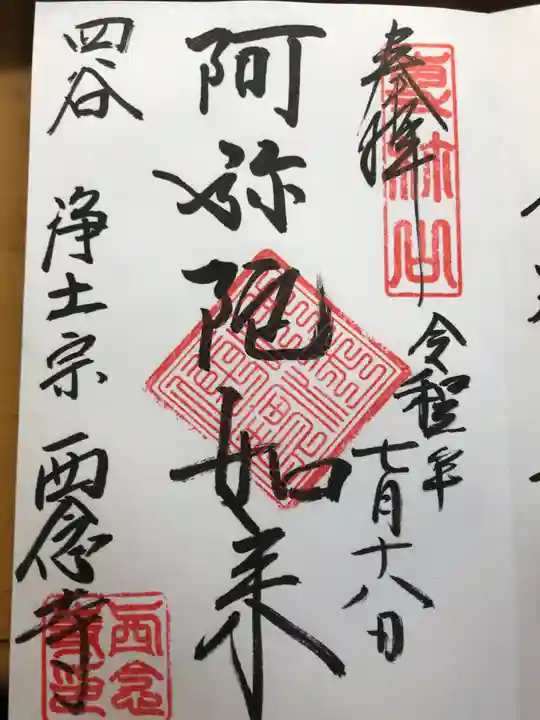 奉拝
令和年七月十八日
阿弥陀如来
四谷 浄土宗 西念寺
西念寺印